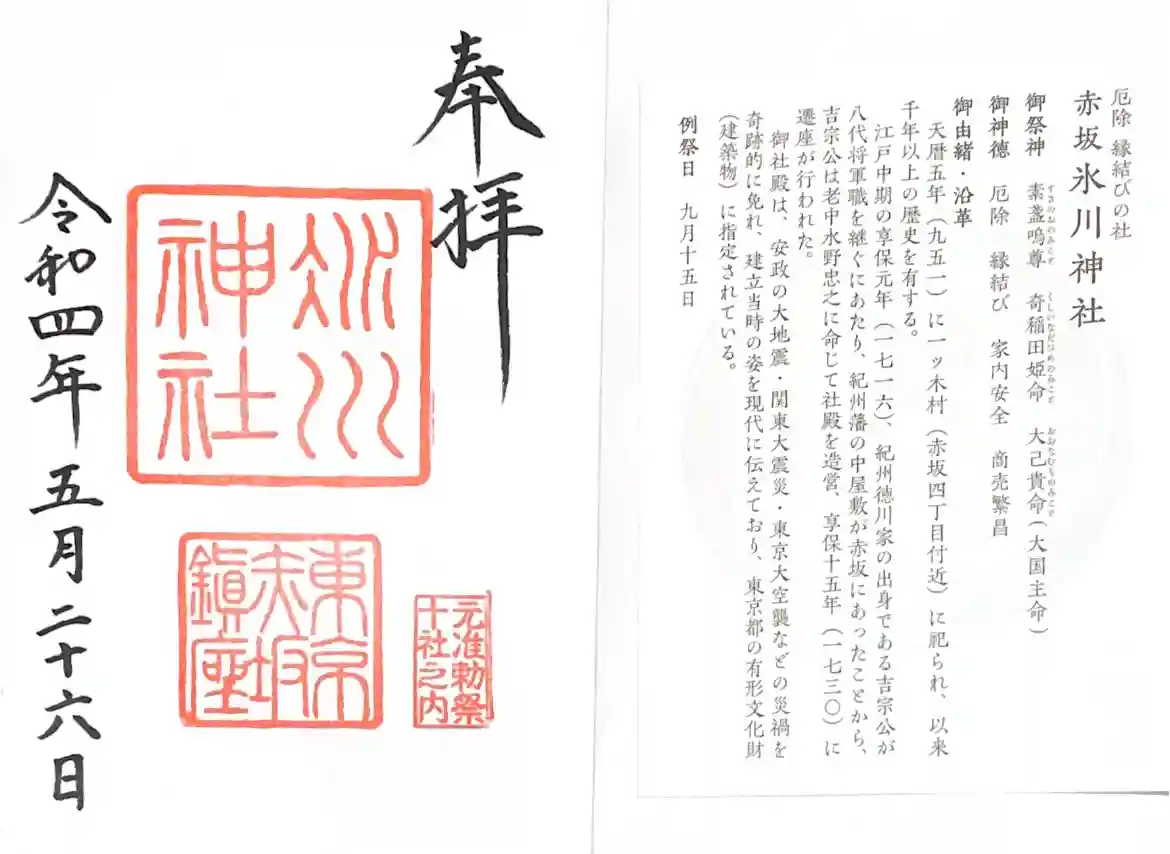 厄除 縁結びの社
赤坂氷川神社
御祭神 素盞嗚尊 奇稲田姫命 大己貴命(大国主命)
すさのおのみこと くしいなだひめのみこと おおなむぢのみこと
御神徳 厄除 縁結び 家内安全 商売繁昌
御由緒・沿革
天暦五年(九五一)に一ッ木村(赤坂四丁目付近)に祀られ、以来
千年以上の歴史を有する。
江戸中期の享保元年(一七一六)、紀州徳川家の出身である吉宗公が
八代将軍職を継ぐにあたり、紀州藩の中屋敷が赤坂にあったことから、
吉宗公は老中水野忠之に命じて社殿を造営、享保十五年(一七三〇)に
遷座が行われた。
御社殿は、安政の大地震・関東大震災・東京大空襲などの災禍を
奇跡的に免れ、建立当時の姿を現代に伝えており、東京都の有形文化財
(建築物)に指定されている。
例祭日 九月十五日
奉拝
氷川
神社
元准勅祭
十社之内
東京
赤坂
鎮座
令和四年五月二十六日